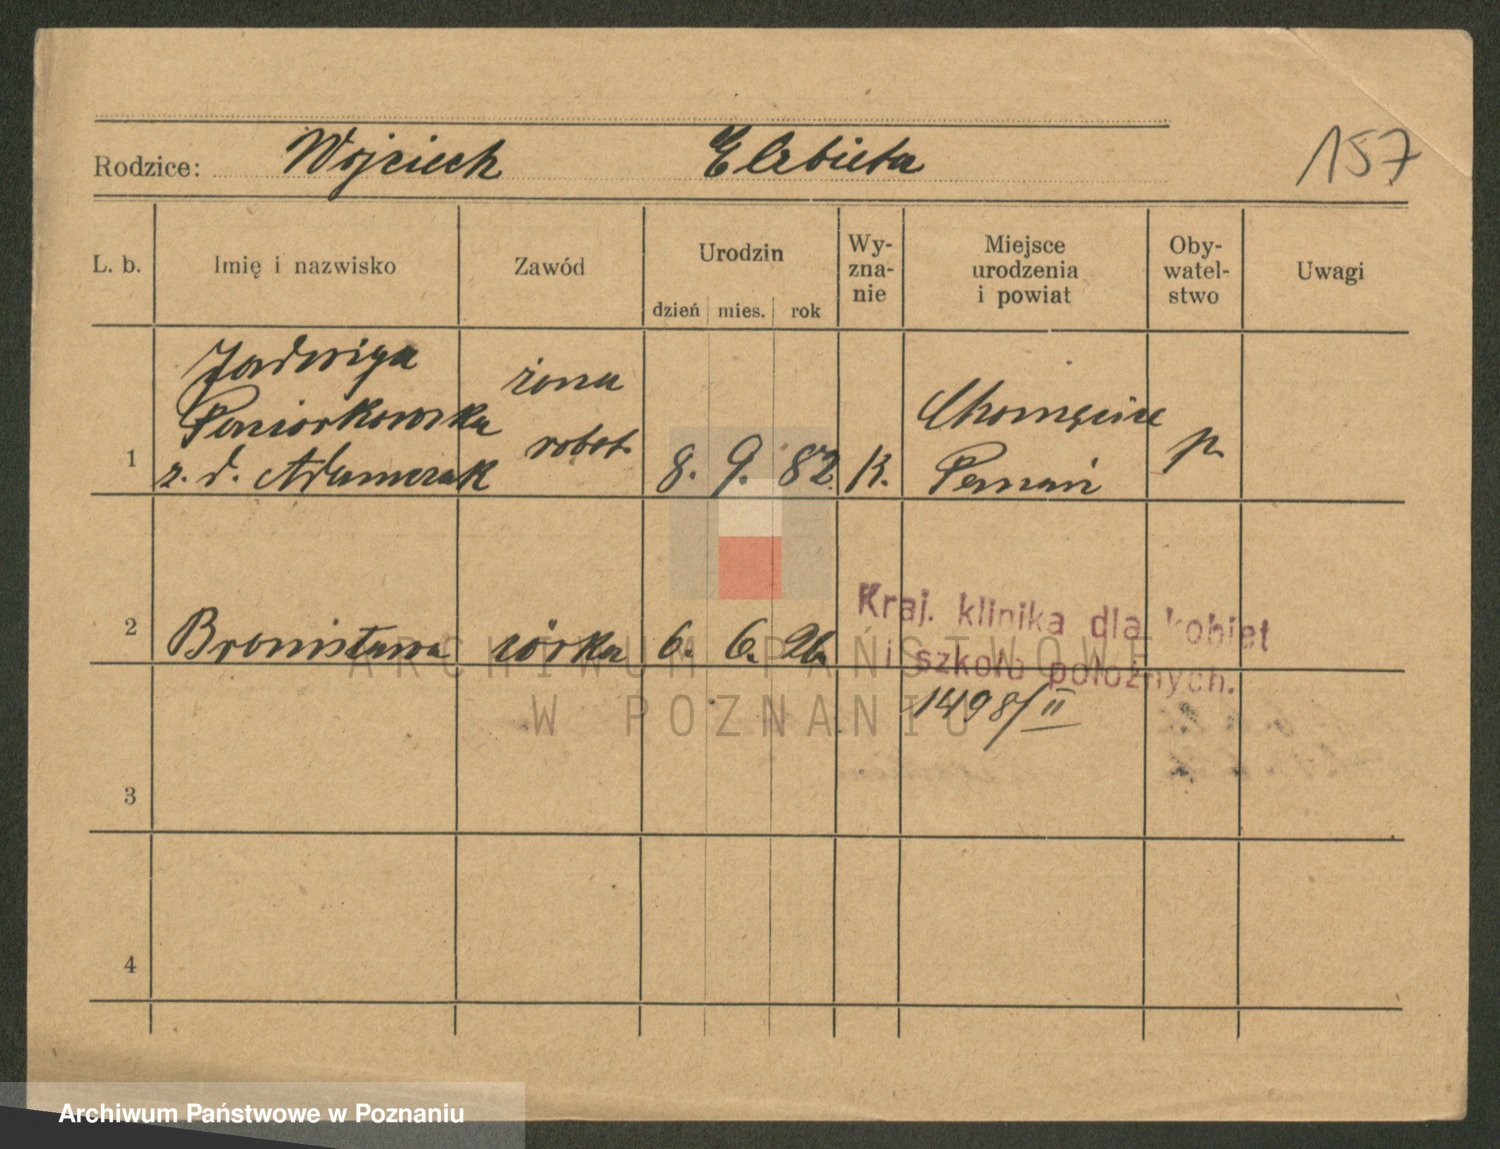 Rodzice: Wojciech Elżbieta
157
L. b. Imię i nazwisko Zawód Urodzin Wy-zna-nie Miejsce urodzenia i powiat Oby-watel-stwo Uwagi
dzień mies. rok
Jadwiga żona
robot.
1 z. d. Adamczak 8. 9. 82. K. p.
2 Bronisława córka 6. 6. 26
Kraj. klinika dla kobiet
i szkoła położnych.
1498/II
3
4
ARCHIWUM PAŃSTWOWE
W POZNANIU
Archiwum Państwowe w Poznaniu